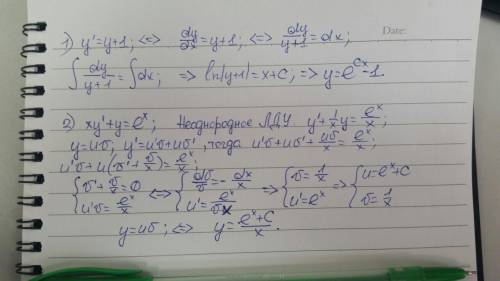 Date:
1) y' = y+1; <=> dy/dx = y+1; <=> dy/(y+1) = dx;
∫ dy/(y+1) = ∫ dx; => ln|y+1| = x+C, => y = e^(Cx) - 1.
2) xy' + y = e^x; Неоднородное ЛДУ. y' + 1/x y = e^x/x;
y = uv; y' = u'v + uv', тогда u'v + uv' + uv/x = e^x/x;
u'v + u(v' + v/x) = e^x/x;
{ v' + v/x = 0 <=> { dv/v = - dx/x => { v = 1/x => { u = e^x + C
{ u'v = e^x/x { u' = e^x/vx { u' = e^x { v = 1/x
y = uv; <=> y = (e^x + C)/x.